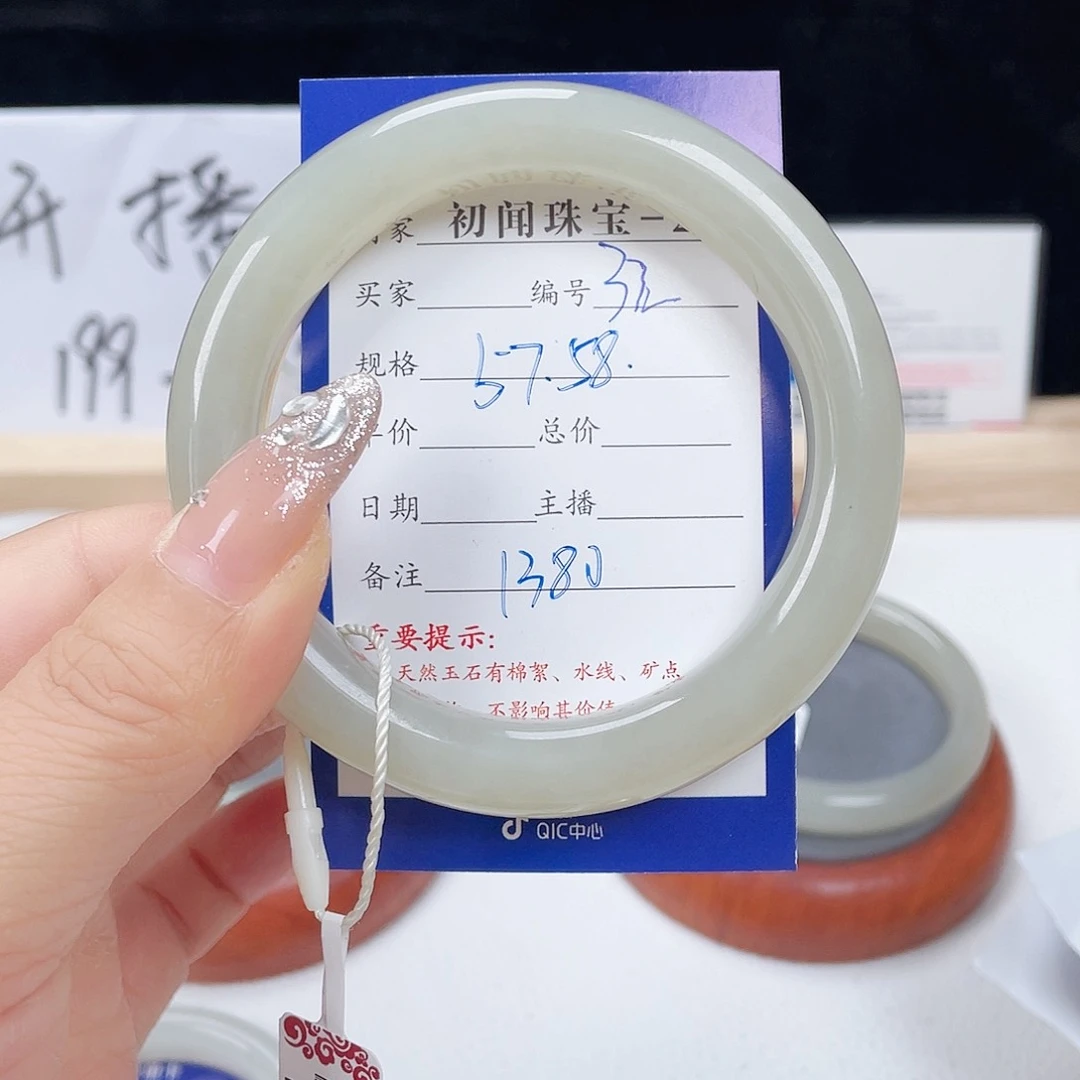 开播
199
初闻珠宝-2
家
买家 编号
规格 57.58.
价 总价
日期 主播
备注 1380
重要提示:
天然玉石有棉絮、水线、矿点
不影响其价值
QIC中心